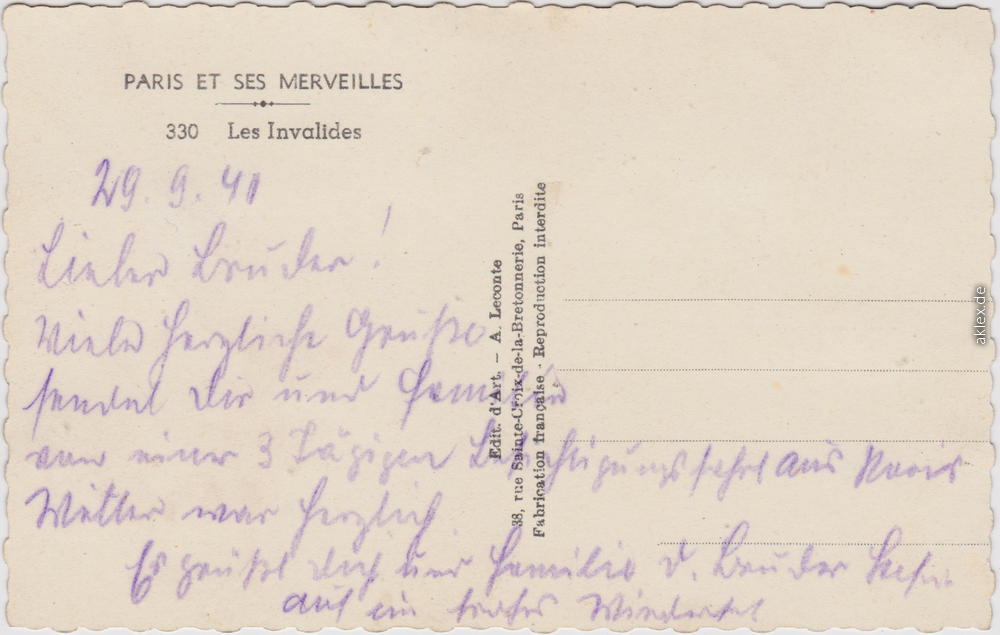 PARIS ET SES MERVEILLES
330 Les Invalides
29. 9. 41
Lieber Bruder!
Viele herzliche Grüße
sendet Dir und Familie
von einer 3 Tägigen Besichtigungsfahrt aus Paris
Wetter war herzlich.
Es grüßt Dich und Familie d. Bruder
auf ein frohes Wiedersehn
Edit. d'Art. – A. Leconte
38, rue Sainte-Croix-de-la-Bretonnerie, Paris
Fabrication française - Reproduction interdite
aklex.de